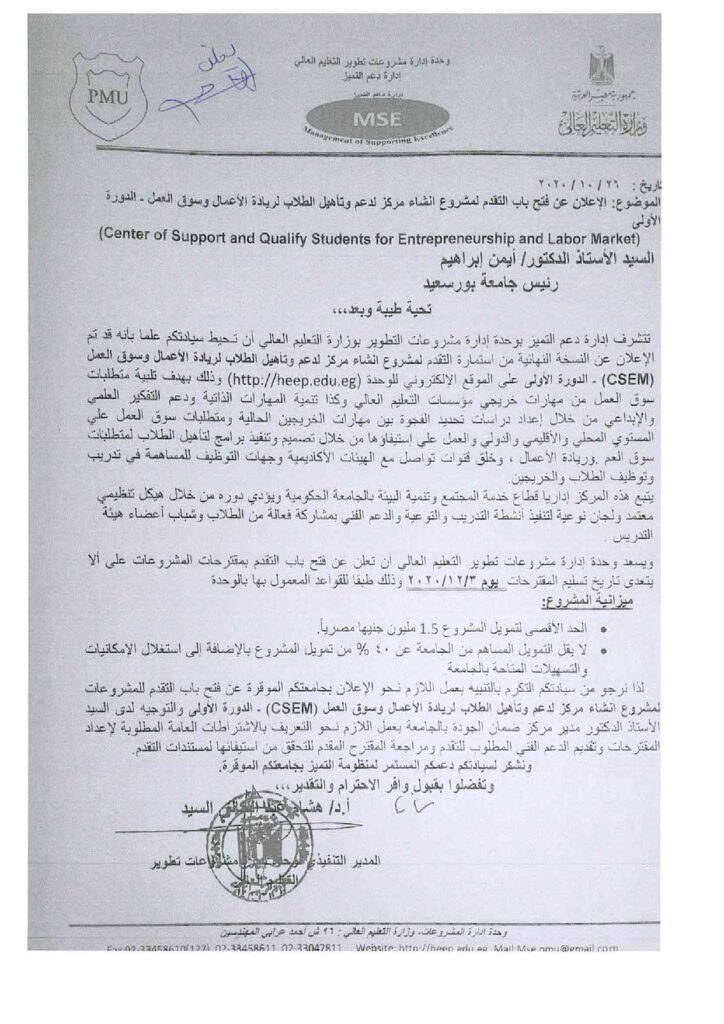 وحدة إدارة مشروعات تطوير التعليم العالي
إدارة دعم التميز
إدارة دعم التميز
MSE
Management of Supporting Excellence
PMU
جمهورية مصر العربية
وزارة التعليم العالي
تاريخ : ٢٦ / ١٠ / ٢٠٢٠
الموضوع: الإعلان عن فتح باب التقدم لمشروع انشاء مركز لدعم وتأهيل الطلاب لريادة الأعمال وسوق العمل - الدورة
الأولى
(Center of Support and Qualify Students for Entrepreneurship and Labor Market)
السيد الأستاذ الدكتور/ أيمن إبراهيم
رئيس جامعة بورسعيد
تحية طيبة وبعد،،،
تتشرف إدارة دعم التميز بوحدة إدارة مشروعات التطوير بوزارة التعليم العالي أن تحيط سيادتكم علما بأنه قد تم
الإعلان عن النسخة النهائية من استمارة التقدم لمشروع انشاء مركز لدعم وتأهيل الطلاب لريادة الأعمال وسوق العمل
(CSEM) - الدورة الأولى على الموقع الالكتروني للوحدة (http://heep.edu.eg) وذلك بهدف تلبية متطلبات
سوق العمل من مهارات خريجي مؤسسات التعليم العالي وكذا تنمية المهارات الذاتية ودعم التفكير العلمي
والإبداعي من خلال إعداد دراسات تحديد الفجوة بين مهارات الخريجين الحالية ومتطلبات سوق العمل علي
المستوي المحلي والأقليمي والدولي والعمل علي إستيفاؤها من خلال تصميم وتنفيذ برامج لتأهيل الطلاب لمتطلبات
سوق العم .وريادة الأعمال ، وخلق قنوات تواصل مع الهيئات الأكاديمية وجهات التوظيف للمساهمة في تدريب
وتوظيف الطلاب والخريجين.
يتبع هذه المركز إداريا قطاع خدمة المجتمع وتنمية البيئة بالجامعة الحكومية ويؤدي دوره من خلال هيكل تنظيمي
معتمد ولجان نوعية لتنفيذ أنشطة التدريب والتوعية والدعم الفني بمشاركة فعالة من الطلاب وشباب أعضاء هيئة
التدريس .
ويسعد وحدة إدارة مشروعات تطوير التعليم العالي أن تعلن عن فتح باب التقدم بمقترحات المشروعات على ألا
يتعدى تاريخ تسليم المقترحات يوم ٢٠٢٠/١٢/٣ وذلك طبقا للقواعد المعمول بها بالوحدة
ميزانية المشروع:
• الحد الأقصى لتمويل المشروع 1.5 مليون جنيها مصرياً.
• لا يقل التمويل المساهم من الجامعة عن ٤٠ % من تمويل المشروع بالإضافة إلى استغلال الإمكانيات
والتسهيلات المتاحة بالجامعة.
لذا نرجو من سيادتكم التكرم بالتنبيه بعمل اللازم نحو الإعلان بجامعتكم الموقرة عن فتح باب التقدم للمشروعات
لمشروع انشاء مركز لدعم وتأهيل الطلاب لريادة الأعمال وسوق العمل (CSEM) - الدورة الأولى والتوجيه لدى السيد
الأستاذ الدكتور مدير مركز ضمان الجودة بالجامعة بعمل اللازم نحو التعريف بالاشتراطات العامة المطلوبة لإعداد
المقترحات وتقديم الدعم الفني المطلوب للتقدم ومراجعة المقترح المقدم للتحقق من استيفائها لمستندات التقدم.
ونشكر لسيادتكم دعمكم المستمر لمنظومة التميز بجامعتكم الموقرة.
وتفضلوا بقبول وافر الاحترام والتقدير،،،
أ.د/ هشام عبد العالى السيد
المدير التنفيذي لوحدة إدارة مشروعات تطوير
التعليم العالي
وحدة إدارة المشروعات- وزارة التعليم العالي : ٩٦ ش أحمد عرابي المهندسين
Fax:02-33458610(127) 02-33458611 02-33047811 Website: http://heep.edu.eg Mail:Mse.pmu@gmail.com